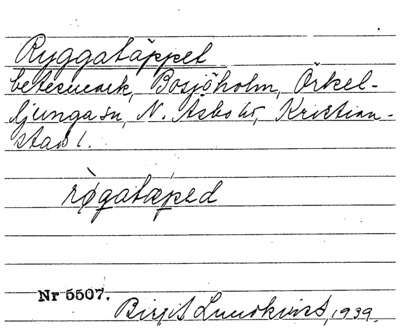 Ryggatäppet
betesmark, Bosjöholm, Örkel-
ljunga sn, N. Åsbo hd, Kristian-
stad l.
rǿgatæped
Nr 5507.
Birgit Lundkvist, 1939.